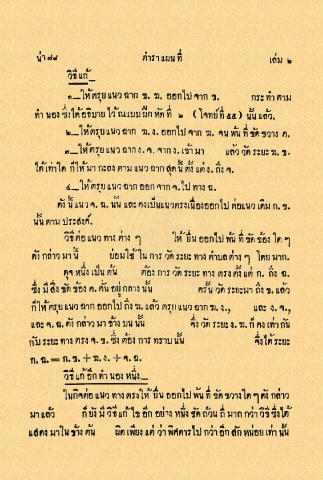 น่า ๗๘ ตำราแผนที่ เล่ม ๒
วิธีแก้
๑__ให้ตรุยแนวฉาก ข. ฆ. ออกไปจาก ข. กระทำตาม
ทำนองซึ่งได้อธิบายไว้ณแบบฝึกหัดที่ ๒ (โจทย์ที่ ๕๕) นั้นแล้ว.
๒__ให้ตรุยแนวฉาก ฆ. ง. ออกไปจาก ฆ. จนพ้นที่ขัดขวาง ค.
๓__ให้ตรุยแนวฉาก ง. จ. จาก ง. เข้ามา แล้ววัดระยะ ฆ. ข.
ได้เท่าใดก็ให้มากะลงตามแนวฉากสุดนี้ตั้งแต่ ง. ถึง จ.
๔__ให้ตรุยแนวฉากออกจาก จ. ไปทาง ฉ.
ดังนี้แนว จ. ฉ. นั้นและคงเป็นแนวตรงเนื่องออกไปต่อแนวเดิม ก. ข.
นั้นตามประสงค์.
วิธีต่อแนวทางต่าง ๆ ให้ยื่นออกไปพ้นที่ขัดข้องใด ๆ
ดังกล่าวมานี้ ย่อมใช้ในการวัดระยะทางตำบลต่าง ๆ โดยมาก.
ดุจหนึ่งเป็นต้น ต้องการวัดระยะทางตรงตั้งแต่ ก. ถึง ฉ.
ซึ่งมีสิ่งขัดข้อง ค. คั่นอยู่กลางนั้น ครั้นวัดระยะมาถึง ข. แล้ว
ก็ให้ตรุยแนวฉากออกไปถึง ฆ. แล้วตรุยแนวฉาก ฆ. ง., และ ง. จ.,
และ จ. ฉ. ดังกล่าวมาข้างบนนั้น จึ่งวัดระยะ ง. ฆ. ก็คงเท่ากัน
กับระยะทางตรง จ. ข. ซึ่งต้องการทราบนั้น จึ่งได้ระยะ
ก. ฉ. = ก. ข. + ฆ. ง. + จ. ฉ.
วิธีแก้อีกทำนองหนึ่ง
ในกิจต่อแนวทางตรงให้ยื่นออกไปพ้นที่ขัดขวางใด ๆ ดังกล่าว
มาแล้ว ก็ยังมีวิธีแก้ไขอีกอย่างหนึ่งชัดถ้วนถี่มากกว่าวิธีซึ่งได้
แสดงมาในข้างต้น ผิดเพียงแต่ว่าพิศดารไปกว่าอีกสักหน่อยเท่านั้น